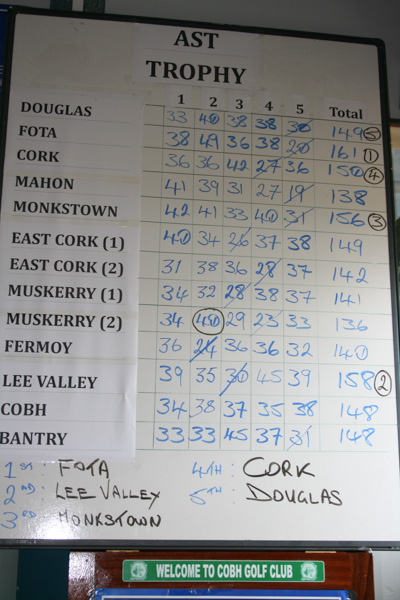 AST
TROPHY
1 2 3 4 5 Total
DOUGLAS 33 40 38 38 30 149 5
FOTA 38 49 36 38 20 161 1
CORK 36 36 42 27 36 150 4
MAHON 41 39 31 27 19 138
MONKSTOWN 42 41 33 40 31 156 3
EAST CORK (1) 40 34 26 37 38 149
EAST CORK (2) 31 38 36 28 37 142
MUSKERRY (1) 34 32 28 38 37 141
MUSKERRY (2) 34 40 29 23 33 136
FERMOY 36 24 36 36 32 140
LEE VALLEY 39 35 30 45 39 158 2
COBH 34 38 37 35 38 148
BANTRY 33 33 45 37 31 148
1ST : FOTA 4TH : CORK
2ND LEE VALLEY 5TH : DOUGLAS
3RD MONKSTOWN
WELCOME TO COBH GOLF CLUB